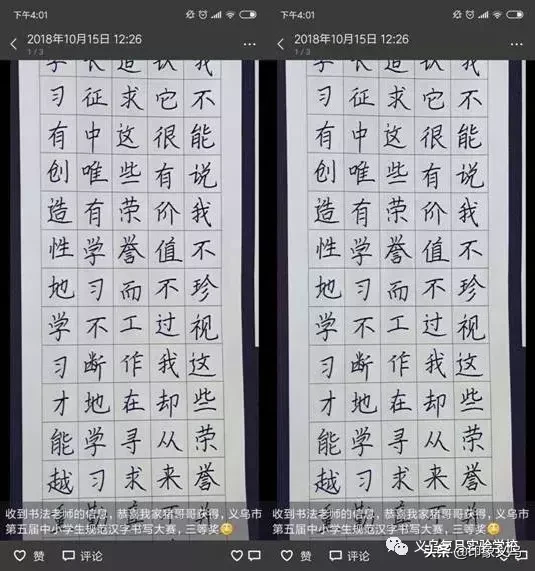 下午4:01
2018年10月15日 12:26
1 / 3
我不能说我不珍视这些荣誉
认它很有价值不过我却从来
追求这些荣誉而工作在寻求
长征中唯有学习不断地学习
学习有创造性地学习才能越
收到书法老师的信息，恭喜我家猪哥哥获得，义乌市
第五届中小学生规范汉字书写大赛，三等奖
赞 评论
下午4:01
2018年10月15日 12:26
1 / 3
我不能说我不珍视这些荣誉
认它很有价值不过我却从来
追求这些荣誉而工作在寻求
长征中唯有学习不断地学习
学习有创造性地学习才能越
收到书法老师的信息，恭喜我家猪哥哥获得，义乌市
第五届中小学生规范汉字书写大赛，三等奖
赞 评论
实验学校